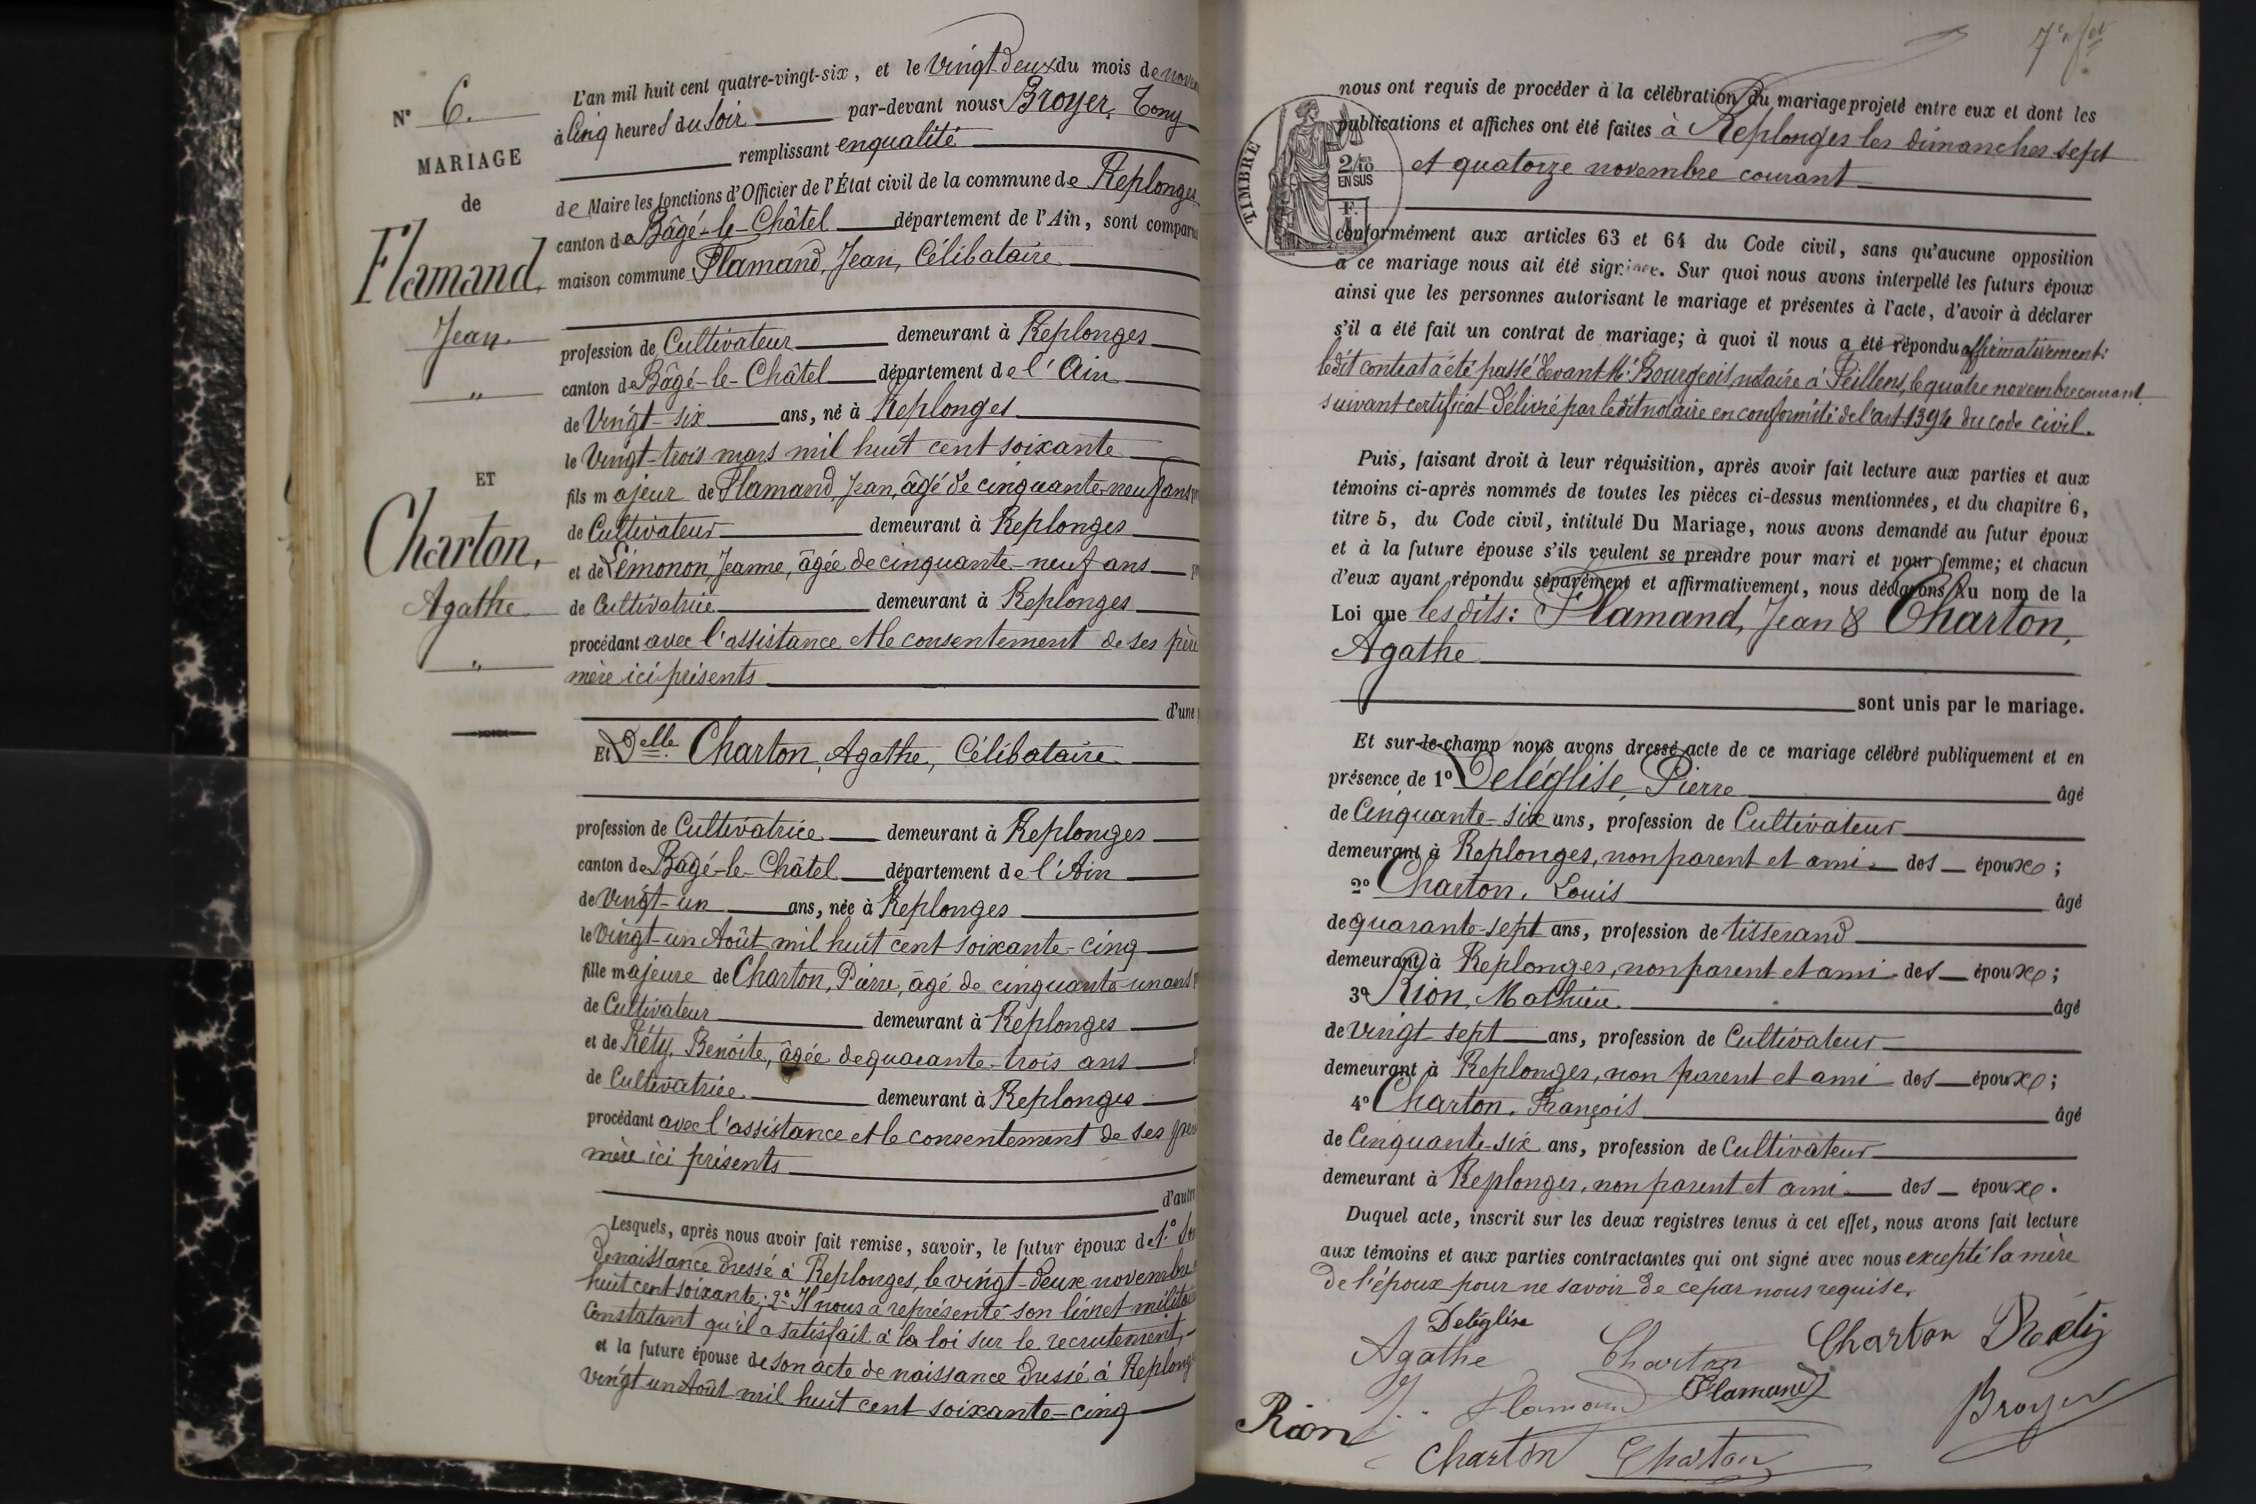 N° 6.
MARIAGE
de
Flamand,
Jean
"
ET
Charton,
Agathe
"
L'an mil huit cent quatre-vingt-six, et le Vingt deux du mois de novem
à Cinq heures du soir par-devant nous Broyer, Tony
remplissant en qualité
de Maire les fonctions d'Officier de l'État civil de la commune de Replonges
canton de Bâgé-le-Châtel département de l'Ain, sont comparus
maison commune Flamand, Jean, Célibataire
profession de Cultivateur demeurant à Replonges
canton de Bâgé-le-Châtel département de l'Ain
de Vingt-six ans, né à Replonges
le Vingt-trois mars mil huit cent soixante
fils majeur de Flamand, Jean, âgé de cinquante-neuf ans
de Cultivateur demeurant à Replonges
et de Lémonon, Jeanne, âgée de cinquante-neuf ans
de Cultivatrice demeurant à Replonges
procédant avec l'assistance et le consentement de ses père
mère ici présents
d'une
Et Delle Charton, Agathe, Célibataire
profession de Cultivatrice demeurant à Replonges
canton de Bâgé-le-Châtel département de l'Ain
de Vingt-un ans, née à Replonges
le Vingt-un Août mil huit cent soixante-cinq
fille majeure de Charton, Pierre, âgé de cinquante-un ans
de Cultivateur demeurant à Replonges
et de Réty, Benoite, âgée de quarante-trois ans
de Cultivatrice demeurant à Replonges
procédant avec l'assistance et le consentement de ses père
mère ici présents
d'autre
Lesquels, après nous avoir fait remise, savoir, le futur époux de 1° Son
de naissance dressé à Replonges, le vingt-deux novembre
huit cent soixante; 2° Il nous a représenté son livret militaire
Constatant qu'il a satisfait à la loi sur le recrutement,
et la future épouse de son acte de naissance dressé à Replonges
vingt un Août mil huit cent soixante-cinq
7e
TIMBRE
2/10
EN SUS
nous ont requis de procéder à la célébration du mariage projeté entre eux et dont les
publications et affiches ont été faites à Replonges les dimanches sept
et quatorze novembre courant
conformément aux articles 63 et 64 du Code civil, sans qu'aucune opposition
a ce mariage nous ait été signifiée. Sur quoi nous avons interpellé les futurs époux
ainsi que les personnes autorisant le mariage et présentes à l'acte, d'avoir à déclarer
s'il a été fait un contrat de mariage; à quoi il nous a été répondu affirmativement:
le dit contrat a été passé devant Me Bourgeois, notaire à Feillens, le quatre novembre courant
suivant certificat délivré par le dit notaire en conformité de l'art 1394 du code civil.
Puis, faisant droit à leur réquisition, après avoir fait lecture aux parties et aux
témoins ci-après nommés de toutes les pièces ci-dessus mentionnées, et du chapitre 6,
titre 5, du Code civil, intitulé Du Mariage, nous avons demandé au futur époux
et à la future épouse s'ils veulent se prendre pour mari et pour femme; et chacun
d'eux ayant répondu séparément et affirmativement, nous déclarons au nom de la
Loi que les dits: Flamand, Jean & Charton,
Agathe
sont unis par le mariage.
Et sur-le-champ nous avons dressé acte de ce mariage célébré publiquement et en
présence de 1° Deléglise, Pierre âgé
de Cinquante-six ans, profession de Cultivateur
demeurant à Replonges, non parent et ami des époux;
2° Charton, Louis âgé
de quarante-sept ans, profession de tisserand
demeurant à Replonges, non parent et ami des époux;
3° Rion, Mathieu âgé
de vingt sept ans, profession de Cultivateur
demeurant à Replonges, non parent et ami des époux;
4° Charton, François âgé
de Cinquante-six ans, profession de Cultivateur
demeurant à Replonges, non parent et ami des époux.
Duquel acte, inscrit sur les deux registres tenus à cet effet, nous avons fait lecture
aux témoins et aux parties contractantes qui ont signé avec nous excepté la mère
de l'époux pour ne savoir de ce par nous requise.
Deléglise
Agathe Charton Charton Réty
J. Flamand Flamand Broyer
Rion
Charton Charton